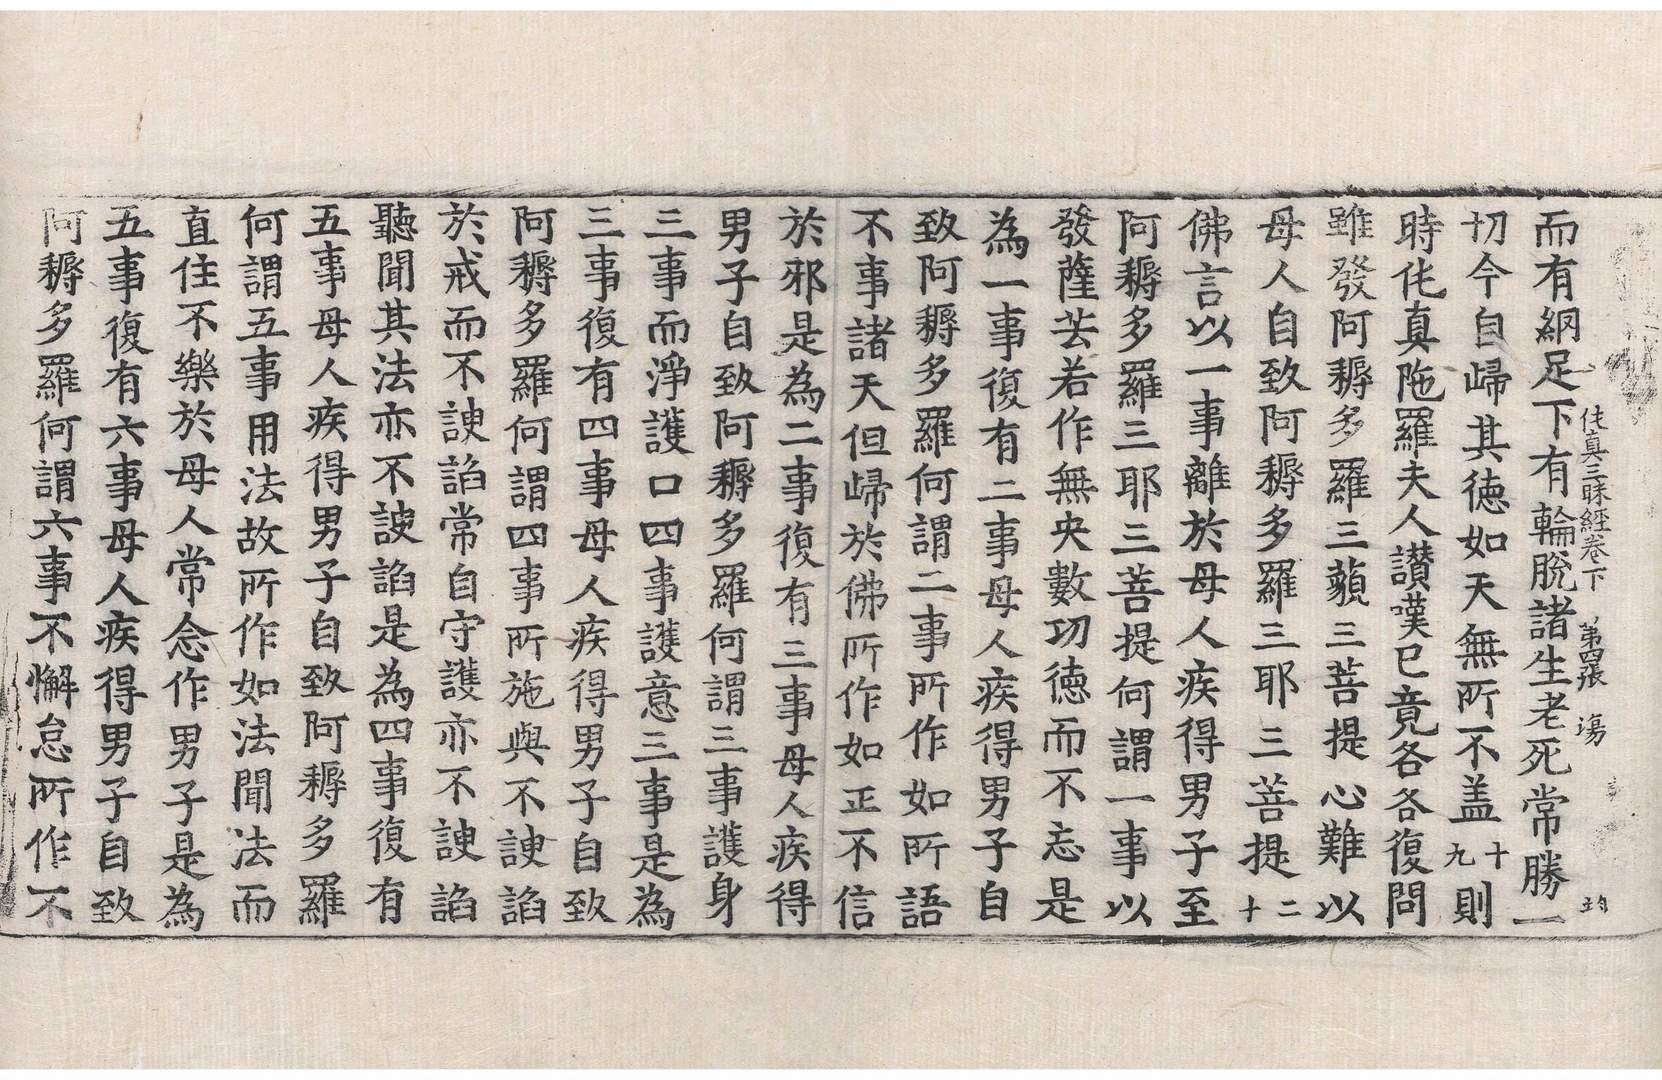 伅真三昧經卷下 第四張 塲
均
而有網足下有輪脫諸生老死常勝一
切今自歸其德如天無所不盖十九則
時伅真陁羅夫人讃嘆已竟各各復問
雖發阿耨多羅三藐三菩提心難以
母人自致阿耨多羅三耶三菩提二十
佛言以一事離於母人疾得男子至
阿耨多羅三耶三菩提何謂一事以
發薩芸若作無央數功德而不忘是
為一事復有二事母人疾得男子自
致阿耨多羅何謂二事所作如所語
不事諸天但歸於佛所作如正不信
於邪是為二事復有三事母人疾得
男子自致阿耨多羅何謂三事護身
三事而淨護口四事護意三事是為
三事復有四事母人疾得男子自致
阿耨多羅何謂四事所施與不諛諂
於戒而不諛諂常自守護亦不諛諂
聽聞其法亦不諛諂是為四事復有
五事母人疾得男子自致阿耨多羅
何謂五事用法故所作如法聞法而
直住不樂於母人常念作男子是為
五事復有六事母人疾得男子自致
阿耨多羅何謂六事不懈怠所作不